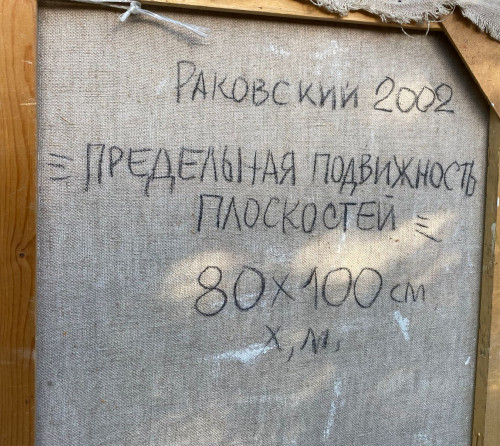 РАКОВСКИЙ 2002
= ПРЕДЕЛЬНАЯ ПОДВИЖНОСТЬ
ПЛОСКОСТЕЙ =
80 х 100 см
х, м.